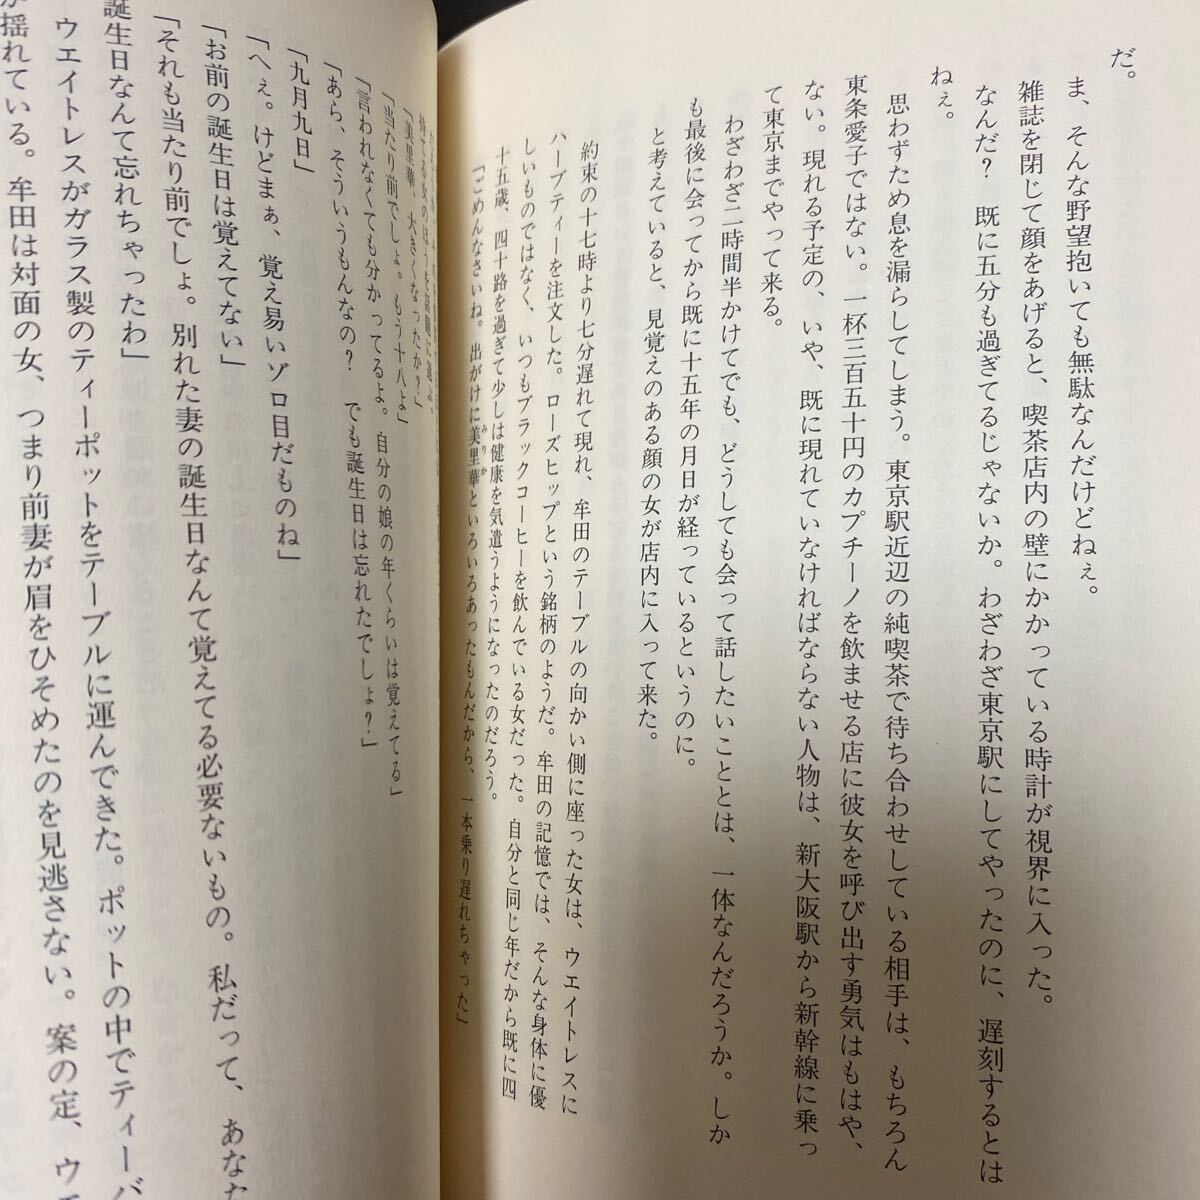 だ。
ま、そんな野望抱いても無駄なんだけどねぇ。
雑誌を閉じて顔をあげると、喫茶店内の壁にかかっている時計が視界に入った。
なんだ？　既に五分も過ぎてるじゃないか。わざわざ東京駅にしてやったのに、遅刻するとは
ねぇ。
思わずため息を漏らしてしまう。東京駅近辺の純喫茶で待ち合わせしている相手は、もちろん
東条愛子ではない。一杯三百五十円のカプチーノを飲ませる店に彼女を呼び出す勇気はもはや、
ない。現れる予定の、いや、既に現れていなければならない人物は、新大阪駅から新幹線に乗っ
て東京までやって来る。
わざわざ二時間半かけてでも、どうしても会って話したいこととは、一体なんだろうか。しか
も最後に会ってから既に十五年の月日が経っているというのに。
と考えていると、見覚えのある顔の女が店内に入って来た。
約束の十七時より七分遅れて現れ、牟田のテーブルの向かい側に座った女は、ウエイトレスに
ハーブティーを注文した。ローズヒップという銘柄のようだ。牟田の記憶では、そんな身体に優
しいものではなく、いつもブラックコーヒーを飲んでいる女だった。自分と同じ年だから既に四
十五歳、四十路を過ぎて少しは健康を気遣うようになったのだろう。
「ごめんなさいね。出がけに美里華といろいろあったもんだから、一本乗り遅れちゃった」
「美里華、大きくなったか？」
「当たり前でしょ。もう十八よ」
「言われなくても分かってるよ。自分の娘の年くらいは覚えてる」
「あら、そういうもんなの？　でも誕生日は忘れたでしょ？」
「九月九日」
「へぇ。けどまぁ、覚え易いゾロ目だものね」
「お前の誕生日は覚えてない」
「それも当たり前でしょ。別れた妻の誕生日なんて覚えてる必要ないもの。私だって、あなた
誕生日なんて忘れちゃったわ」
ウエイトレスがガラス製のティーポットをテーブルに運んできた。ポットの中でティーバ
が揺れている。牟田は対面の女、つまり前妻が眉をひそめたのを見逃さない。案の定、ウエ